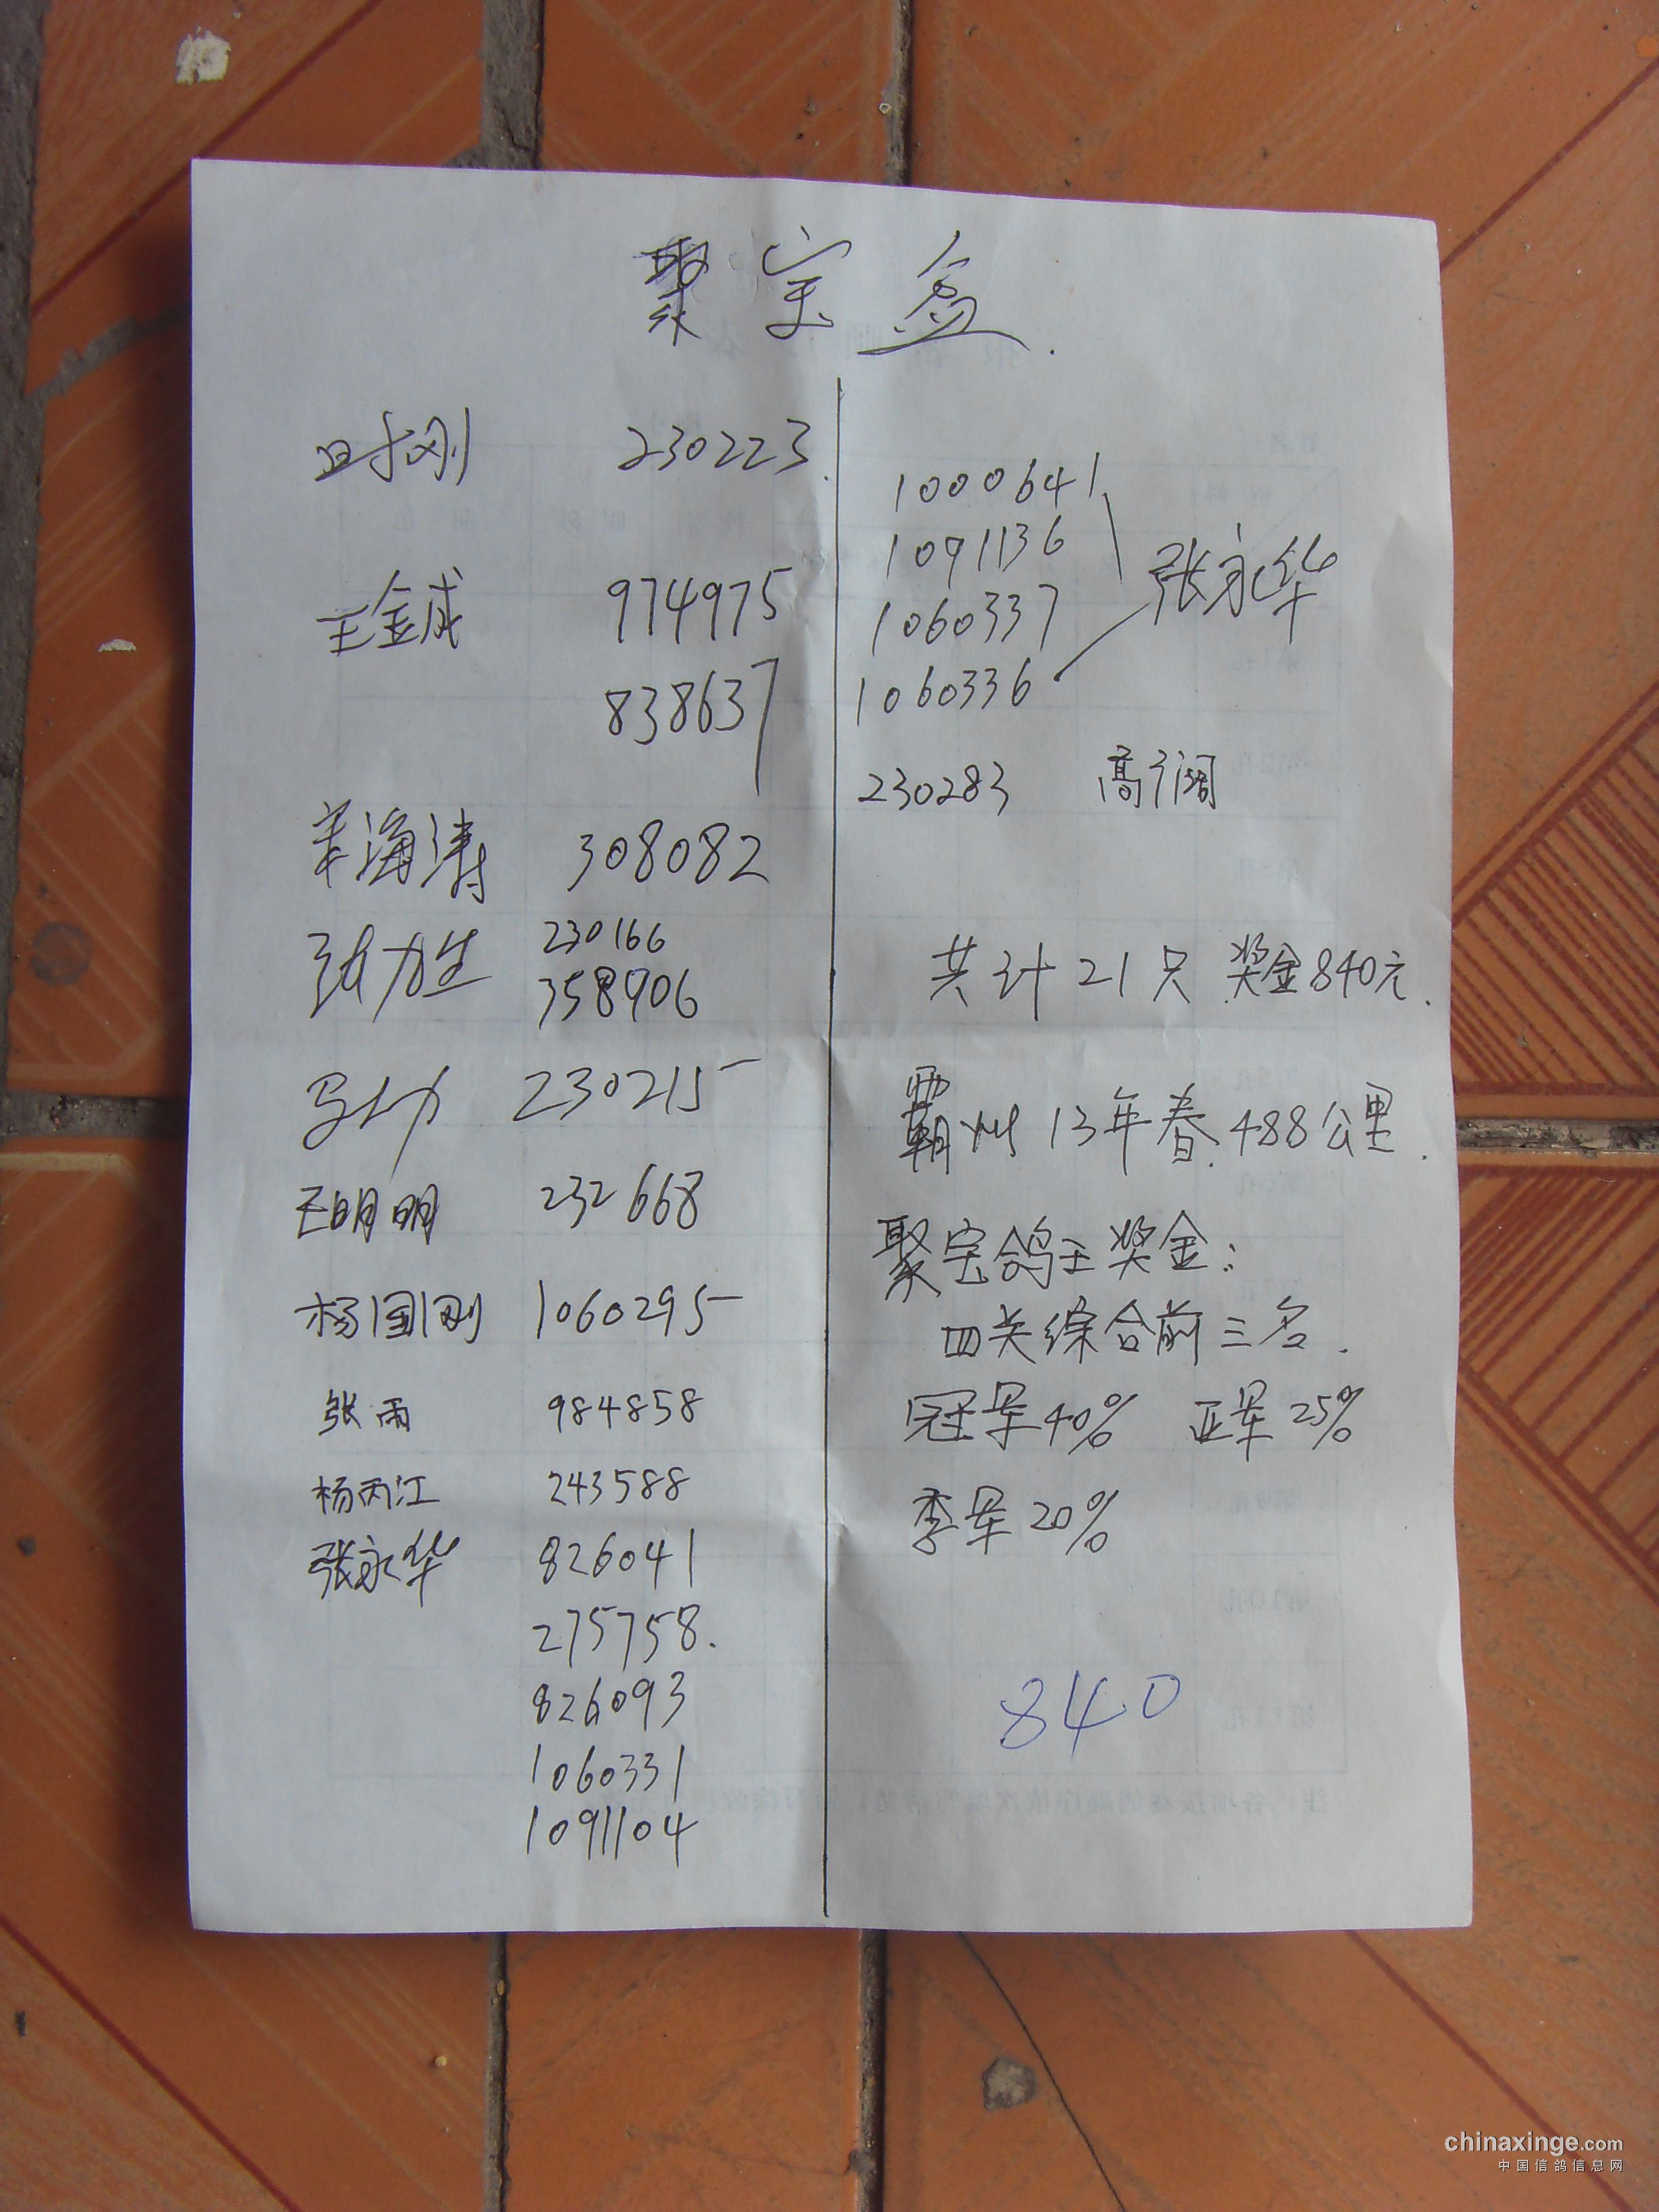 聚宝盆.
时刚 230223.
王金成 974975
838637
羊海涛 308082
张力生 230166
358906
230215
王明明 232668
杨国刚 1060295
张雨 984858
杨丙江 243588
张永华 826041
275758.
826093
1060331
1091104
1000641
1091136
张永华
1060337
1060336
230283 高广阔
共计21只 奖金840元.
霸州13年春.488公里.
聚宝鸽王奖金:
四关综合前三名.
冠军40% 亚军25%
季军20%
840
chinaxinge.com
中国信鸽信息网